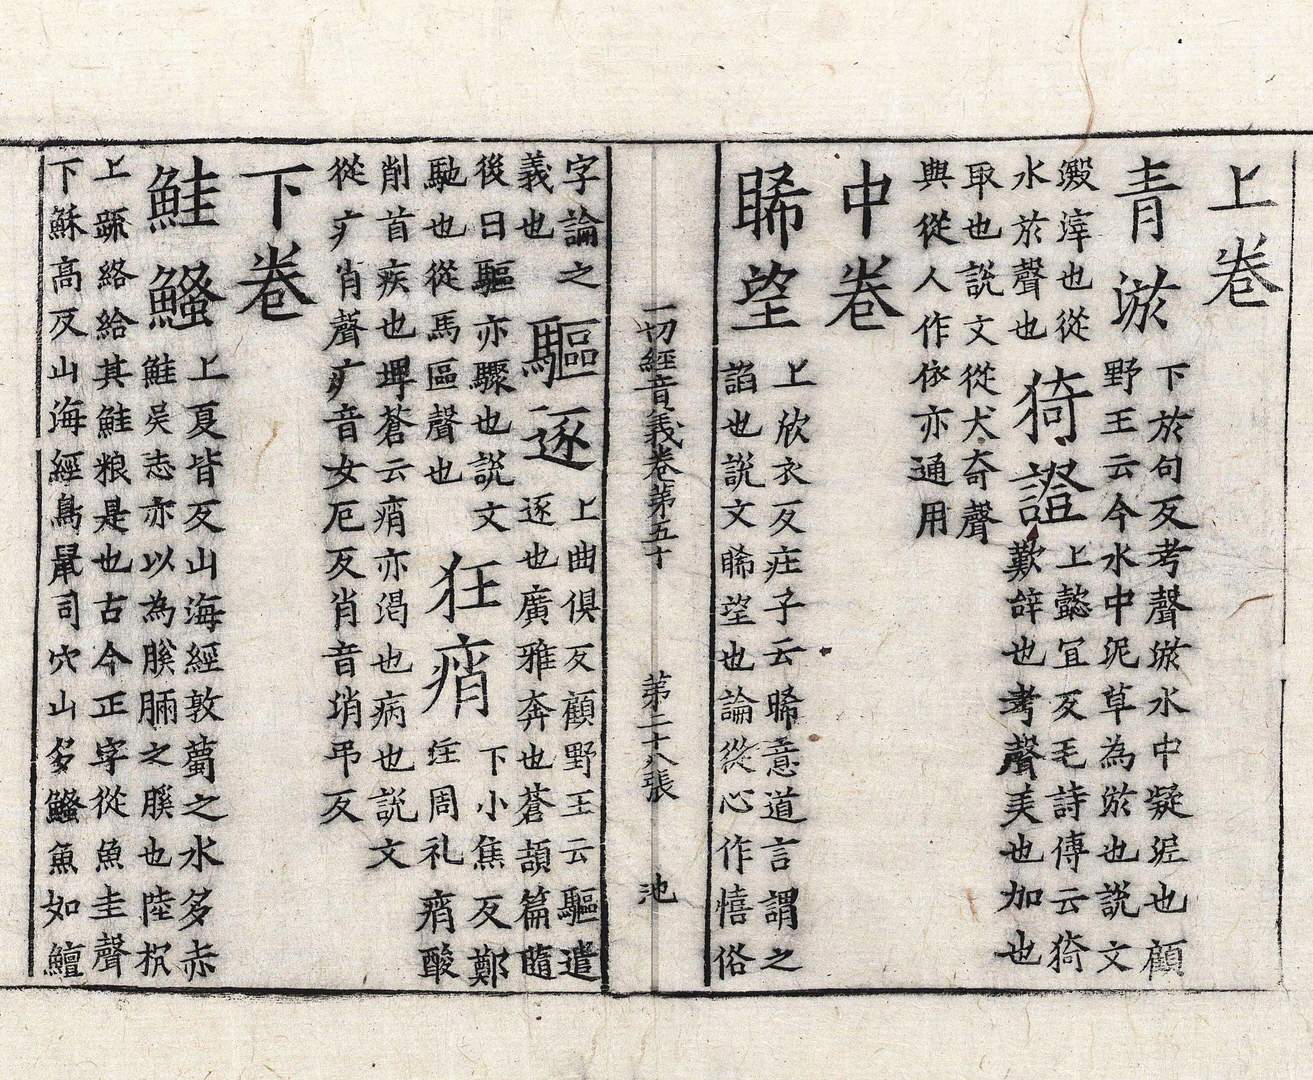 上卷
青淤
下於句反考聲淤水中凝泥也顧
野王云今水中泥草為淤也說文
澱滓也從
水於聲也
猗證
上懿冝反毛詩傳云猗
歎辝也考聲美也加也
取也説文從犬奇聲
與從人作依亦通用
中卷
睎望
上欣衣反莊子云睎意道言謂之
諂也說文睎望也論從心作悕俗
一切經音義卷第五十 第二十八張 池
字論之
義也
驅逐
上曲俱反顧野王云驅遣
逐也廣雅奔也蒼頡篇隨
後曰驅亦驟也説文
馳也從馬區聲也
狂痟
下小焦反鄭
注周礼痟酸
削首疾也埤蒼云痟亦渴也病也説文
從疒肖聲疒音女厄反肖音弔反
下卷
鮭鰠
上夏皆反山海經敦薨之水多赤
鮭吳志亦以為膎脼之膎也陸抗
上䟽絡給其鮭粮是也古今正字從魚圭聲
下穌高反山海經鳥鼠司穴山多鰠魚如鱣